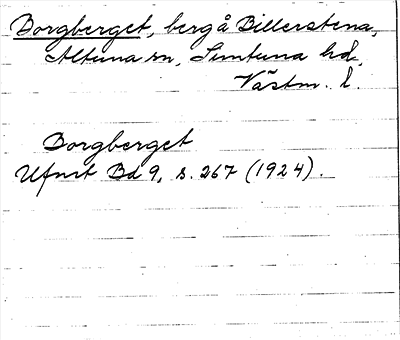 Borgberget, berg å Billerstena,
Altuna sn, Simtuna hd,
Västm. l.
Borgberget
Ufmt Bd 9, s. 267 (1924).